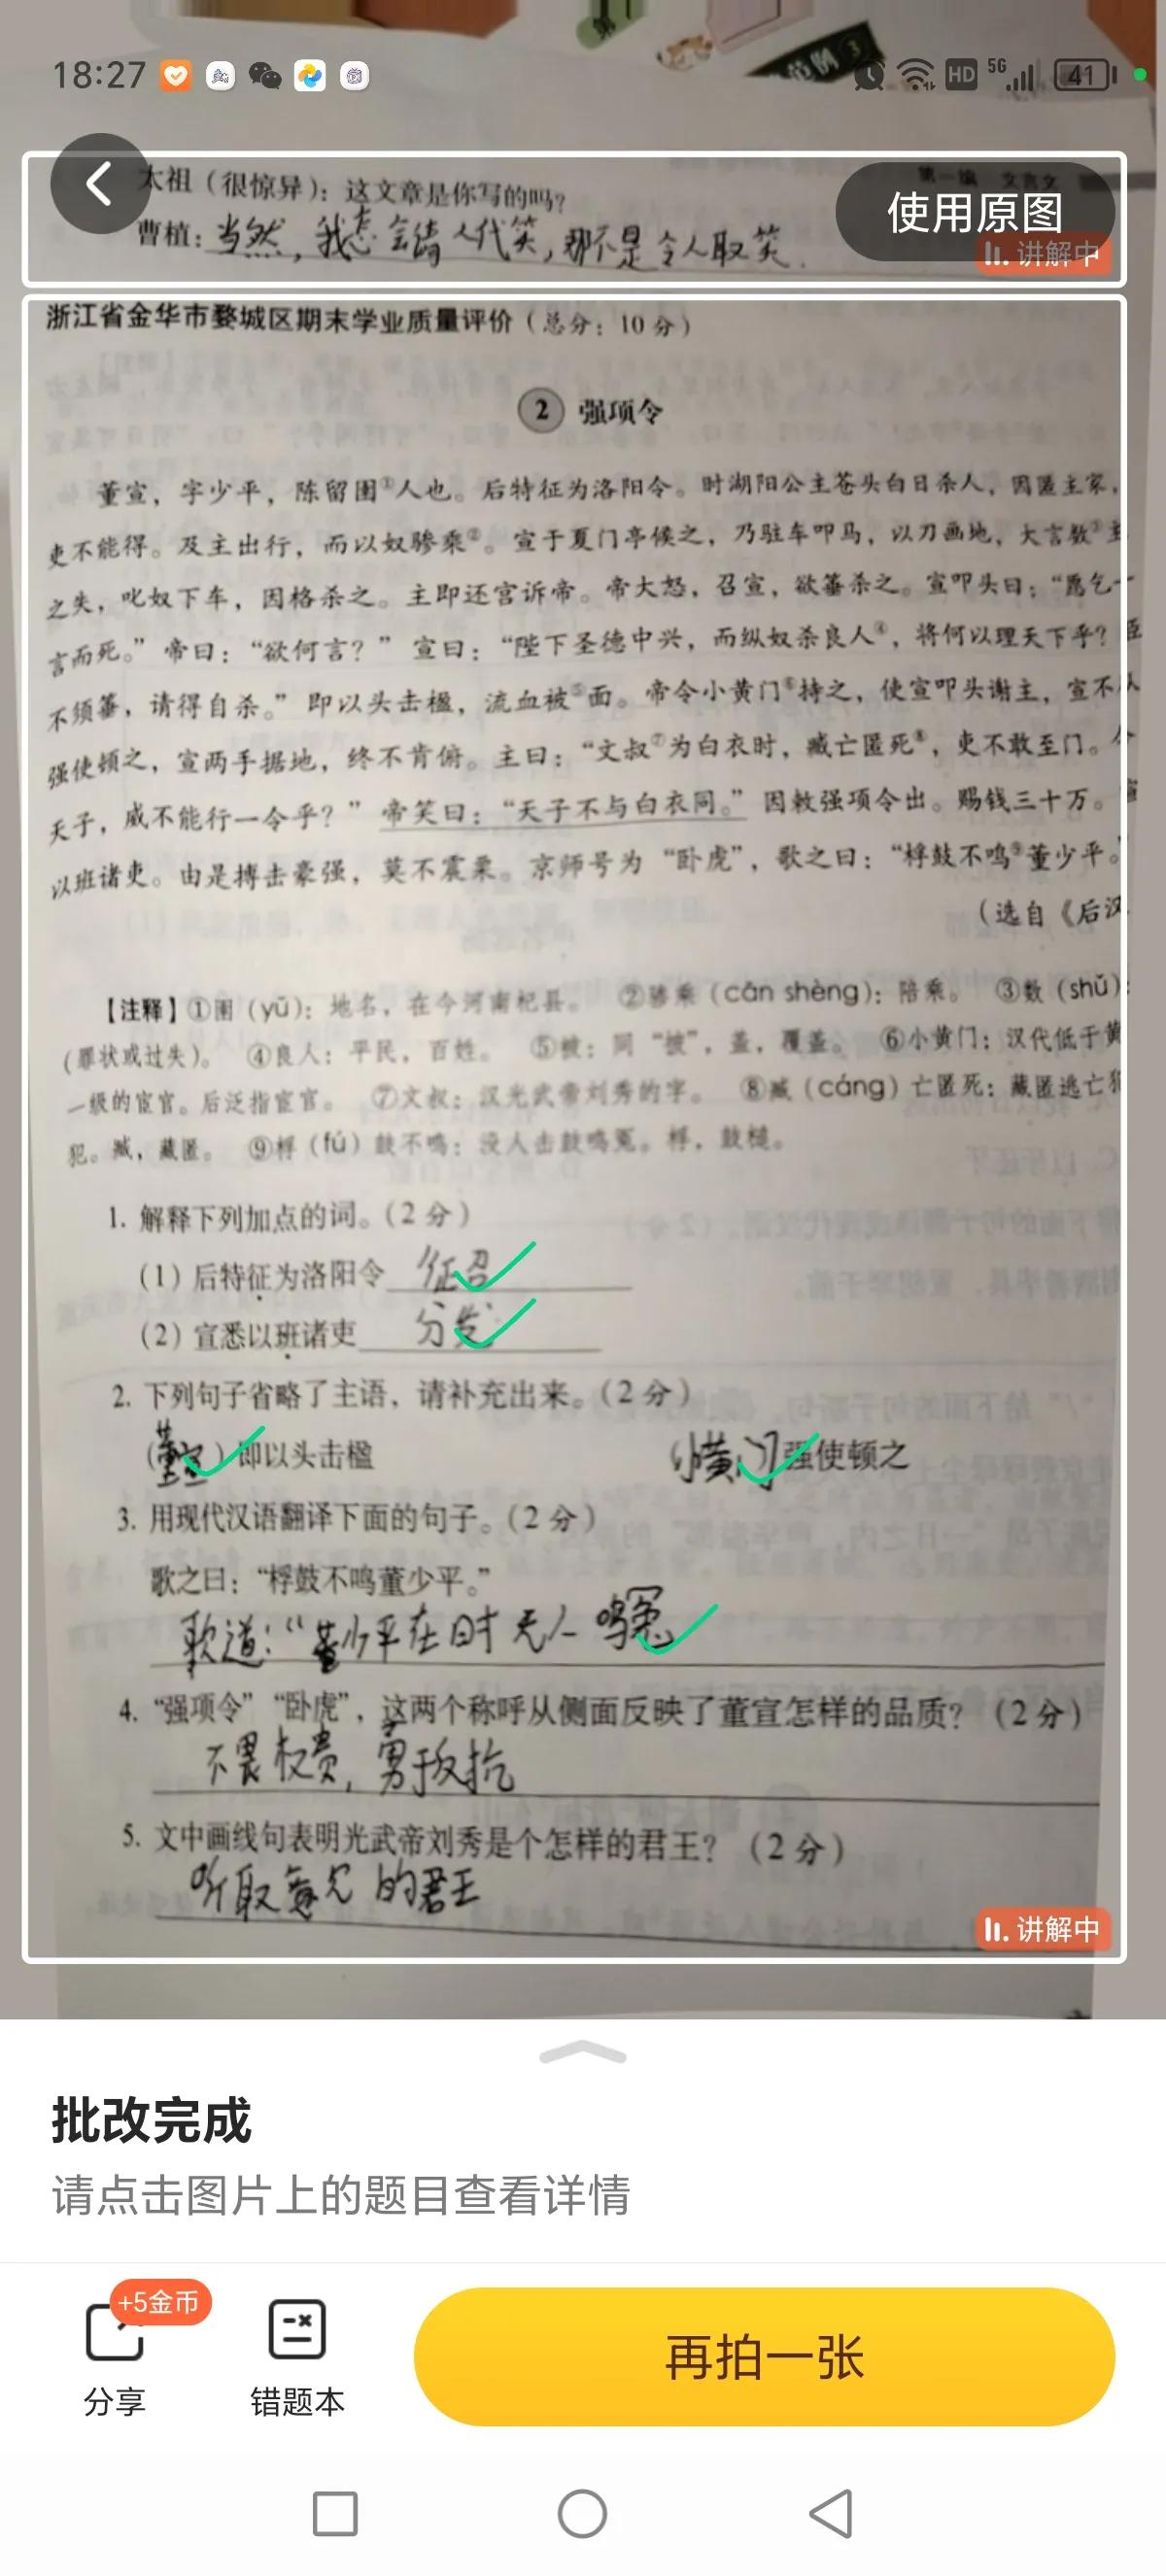 18:27 HD 5G 41
范例 3
第一编 文言文
太祖（很惊异）：这文章是你写的吗？
使用原图
曹植：当然，我怎会请人代笑，那不是令人取笑.
讲解中
浙江省金华市婺城区期末学业质量评价（总分：10 分）
2 强项令
董宣，字少平，陈留圉①人也。后特征为洛阳令。时湖阳公主苍头白日杀人，因匿主家，
吏不能得。及主出行，而以奴骖乘②。宣于夏门亭候之，乃驻车叩马，以刀画地，大言数③主
之失，叱奴下车，因格杀之。主即还宫诉帝。帝大怒，召宣，欲箠杀之。宣叩头曰：“愿乞一
言而死。”帝曰：“欲何言？” 宣曰：“陛下圣德中兴，而纵奴杀良人④，将何以理天下乎？臣
不须箠，请得自杀。” 即以头击楹，流血被⑤面。帝令小黄门⑥持之，使宣叩头谢主，宣不从
强使顿之，宣两手据地，终不肯俯。主曰：“文叔⑦为白衣时，臧亡匿死⑧，吏不敢至门。今
天子，威不能行一令乎？” 帝笑曰：“天子不与白衣同。” 因敕强项令出。赐钱三十万。宣
以班诸吏。由是搏击豪强，莫不震栗。京师号为“卧虎”，歌之曰：“枹鼓不鸣⑨董少平。”
（选自《后汉
【注释】①圉（yǔ）：地名，在今河南杞县。 ②骖乘（cān shèng）：陪乘。 ③数（shǔ）：
（罪状或过失）。 ④良人：平民，百姓。 ⑤被：同“披”，盖，覆盖。 ⑥小黄门：汉代低于黄
一级的宦官。后泛指宦官。 ⑦文叔：汉光武帝刘秀的字。 ⑧臧（cáng）亡匿死：藏匿逃亡犯
犯。臧，藏匿。 ⑨枹（fú）鼓不鸣：没人击鼓鸣冤。枹，鼓槌。
1. 解释下列加点的词。（2 分）
（1）后特征为洛阳令 征召
（2）宣悉以班诸吏 分发
2. 下列句子省略了主语，请补充出来。（2 分）
（董宣）即以头击楹 （小黄门）强使顿之
3. 用现代汉语翻译下面的句子。（2 分）
歌之曰：“枹鼓不鸣董少平。”
歌道：“董少平在时无人鸣冤
4. “强项令”“卧虎”，这两个称呼从侧面反映了董宣怎样的品质？（2 分）
不畏权贵，勇于反抗
5. 文中画线句表明光武帝刘秀是个怎样的君王？（2 分）
听取意见的君王
讲解中
批改完成
请点击图片上的题目查看详情
+5金币
分享 错题本 再拍一张